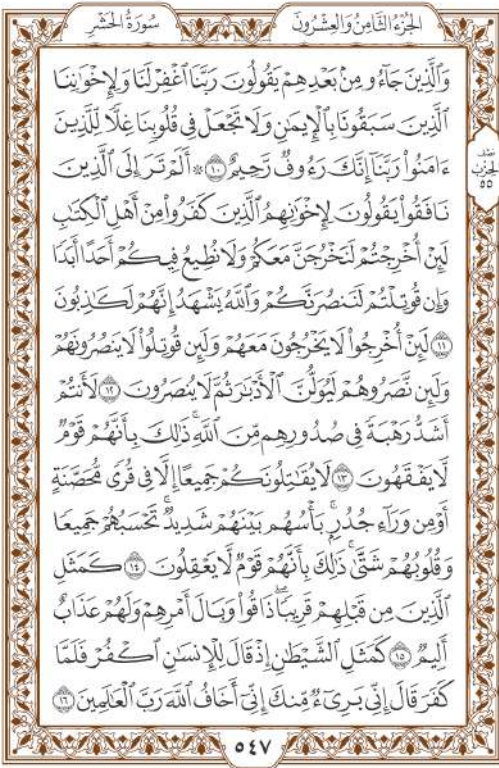 سُورَةُ الْحَشْرِ
الْجُزْءُ الثَّامِنُ وَالْعِشْرُونَ
وَٱلَّذِينَ جَآءُو مِنۢ بَعْدِهِمْ يَقُولُونَ رَبَّنَا ٱغْفِرْ لَنَا وَلِإِخْوَٰنِنَا
ٱلَّذِينَ سَبَقُونَا بِٱلْإِيمَٰنِ وَلَا تَجْعَلْ فِى قُلُوبِنَا غِلًّا لِّلَّذِينَ
ءَامَنُوا۟ رَبَّنَآ إِنَّكَ رَءُوفٌ رَّحِيمٌ ١٠ ۞ أَلَمْ تَرَ إِلَى ٱلَّذِينَ
نَافَقُوا۟ يَقُولُونَ لِإِخْوَٰنِهِمُ ٱلَّذِينَ كَفَرُوا۟ مِنْ أَهْلِ ٱلْكِتَٰبِ
لَئِنْ أُخْرِجْتُمْ لَنَخْرُجَنَّ مَعَكُمْ وَلَا نُطِيعُ فِيكُمْ أَحَدًا أَبَدًا
وَإِن قُوتِلْتُمْ لَنَنصُرَنَّكُمْ وَٱللَّهُ يَشْهَدُ إِنَّهُمْ لَكَٰذِبُونَ
١١ لَئِنْ أُخْرِجُوا۟ لَا يَخْرُجُونَ مَعَهُمْ وَلَئِن قُوتِلُوا۟ لَا يَنصُرُونَهُمْ
وَلَئِن نَّصَرُوهُمْ لَيُوَلُّنَّ ٱلْأَدْبَٰرَ ثُمَّ لَا يُنصَرُونَ ١٢ لَأَنتُمْ
أَشَدُّ رَهْبَةً فِى صُدُورِهِم مِّنَ ٱللَّهِ ۚ ذَٰلِكَ بِأَنَّهُمْ قَوْمٌ
لَّا يَفْقَهُونَ ١٣ لَا يُقَٰتِلُونَكُمْ جَمِيعًا إِلَّا فِى قُرًى مُّحَصَّنَةٍ
أَوْ مِن وَرَآءِ جُدُرٍۭ ۚ بَأْسُهُم بَيْنَهُمْ شَدِيدٌ ۚ تَحْسَبُهُمْ جَمِيعًا
وَقُلُوبُهُمْ شَتَّىٰ ۚ ذَٰلِكَ بِأَنَّهُمْ قَوْمٌ لَّا يَعْقِلُونَ ١٤ كَمَثَلِ
ٱلَّذِينَ مِن قَبْلِهِمْ قَرِيبًا ۖ ذَاقُوا۟ وَبَالَ أَمْرِهِمْ وَلَهُمْ عَذَابٌ
أَلِيمٌ ١٥ كَمَثَلِ ٱلشَّيْطَٰنِ إِذْ قَالَ لِلْإِنسَٰنِ ٱكْفُرْ فَلَمَّا
كَفَرَ قَالَ إِنِّى بَرِىٓءٌ مِّنكَ إِنِّىٓ أَخَافُ ٱللَّهَ رَبَّ ٱلْعَٰلَمِينَ ١٦
نصف
الحزب
٥٥
٥٤٧